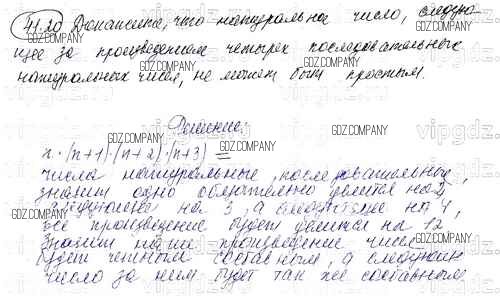 41.20 Докажите, что натуральное число, следую-
щее за произведением четырех последовательных
натуральных чисел, не может быть простым.
Решение:
n·(n+1)·(n+2)·(n+3) =
числа натуральные, последовательные,
значит одно обязательно делится на 2,
на 3, а следующее на 4,
все произведение будет делится на 12
значит наше произведение чисел
будет четным составным, а следующее
число за ним будет так же составным
GDZ.COMPANY
vipgdz